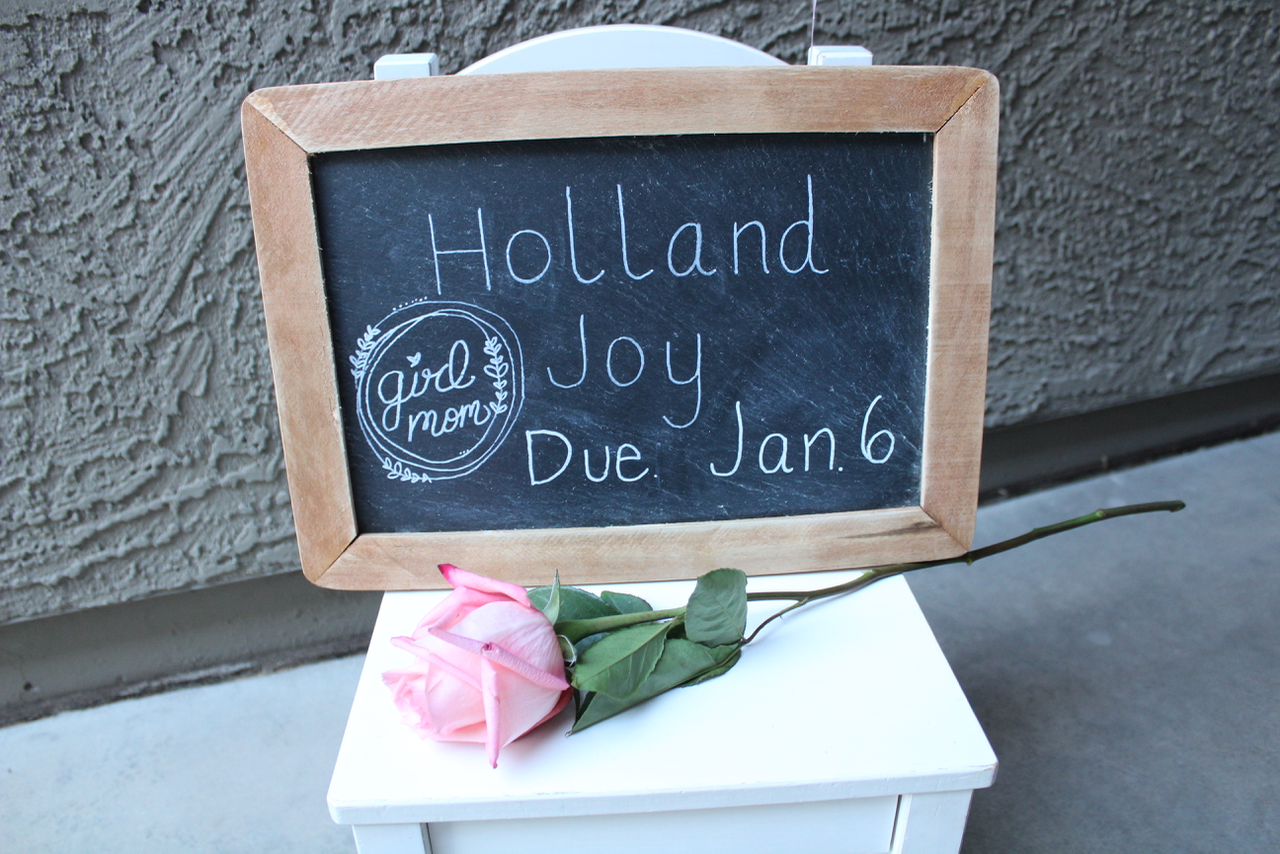 Holland
Joy
girl
mom
Due. Jan. 6